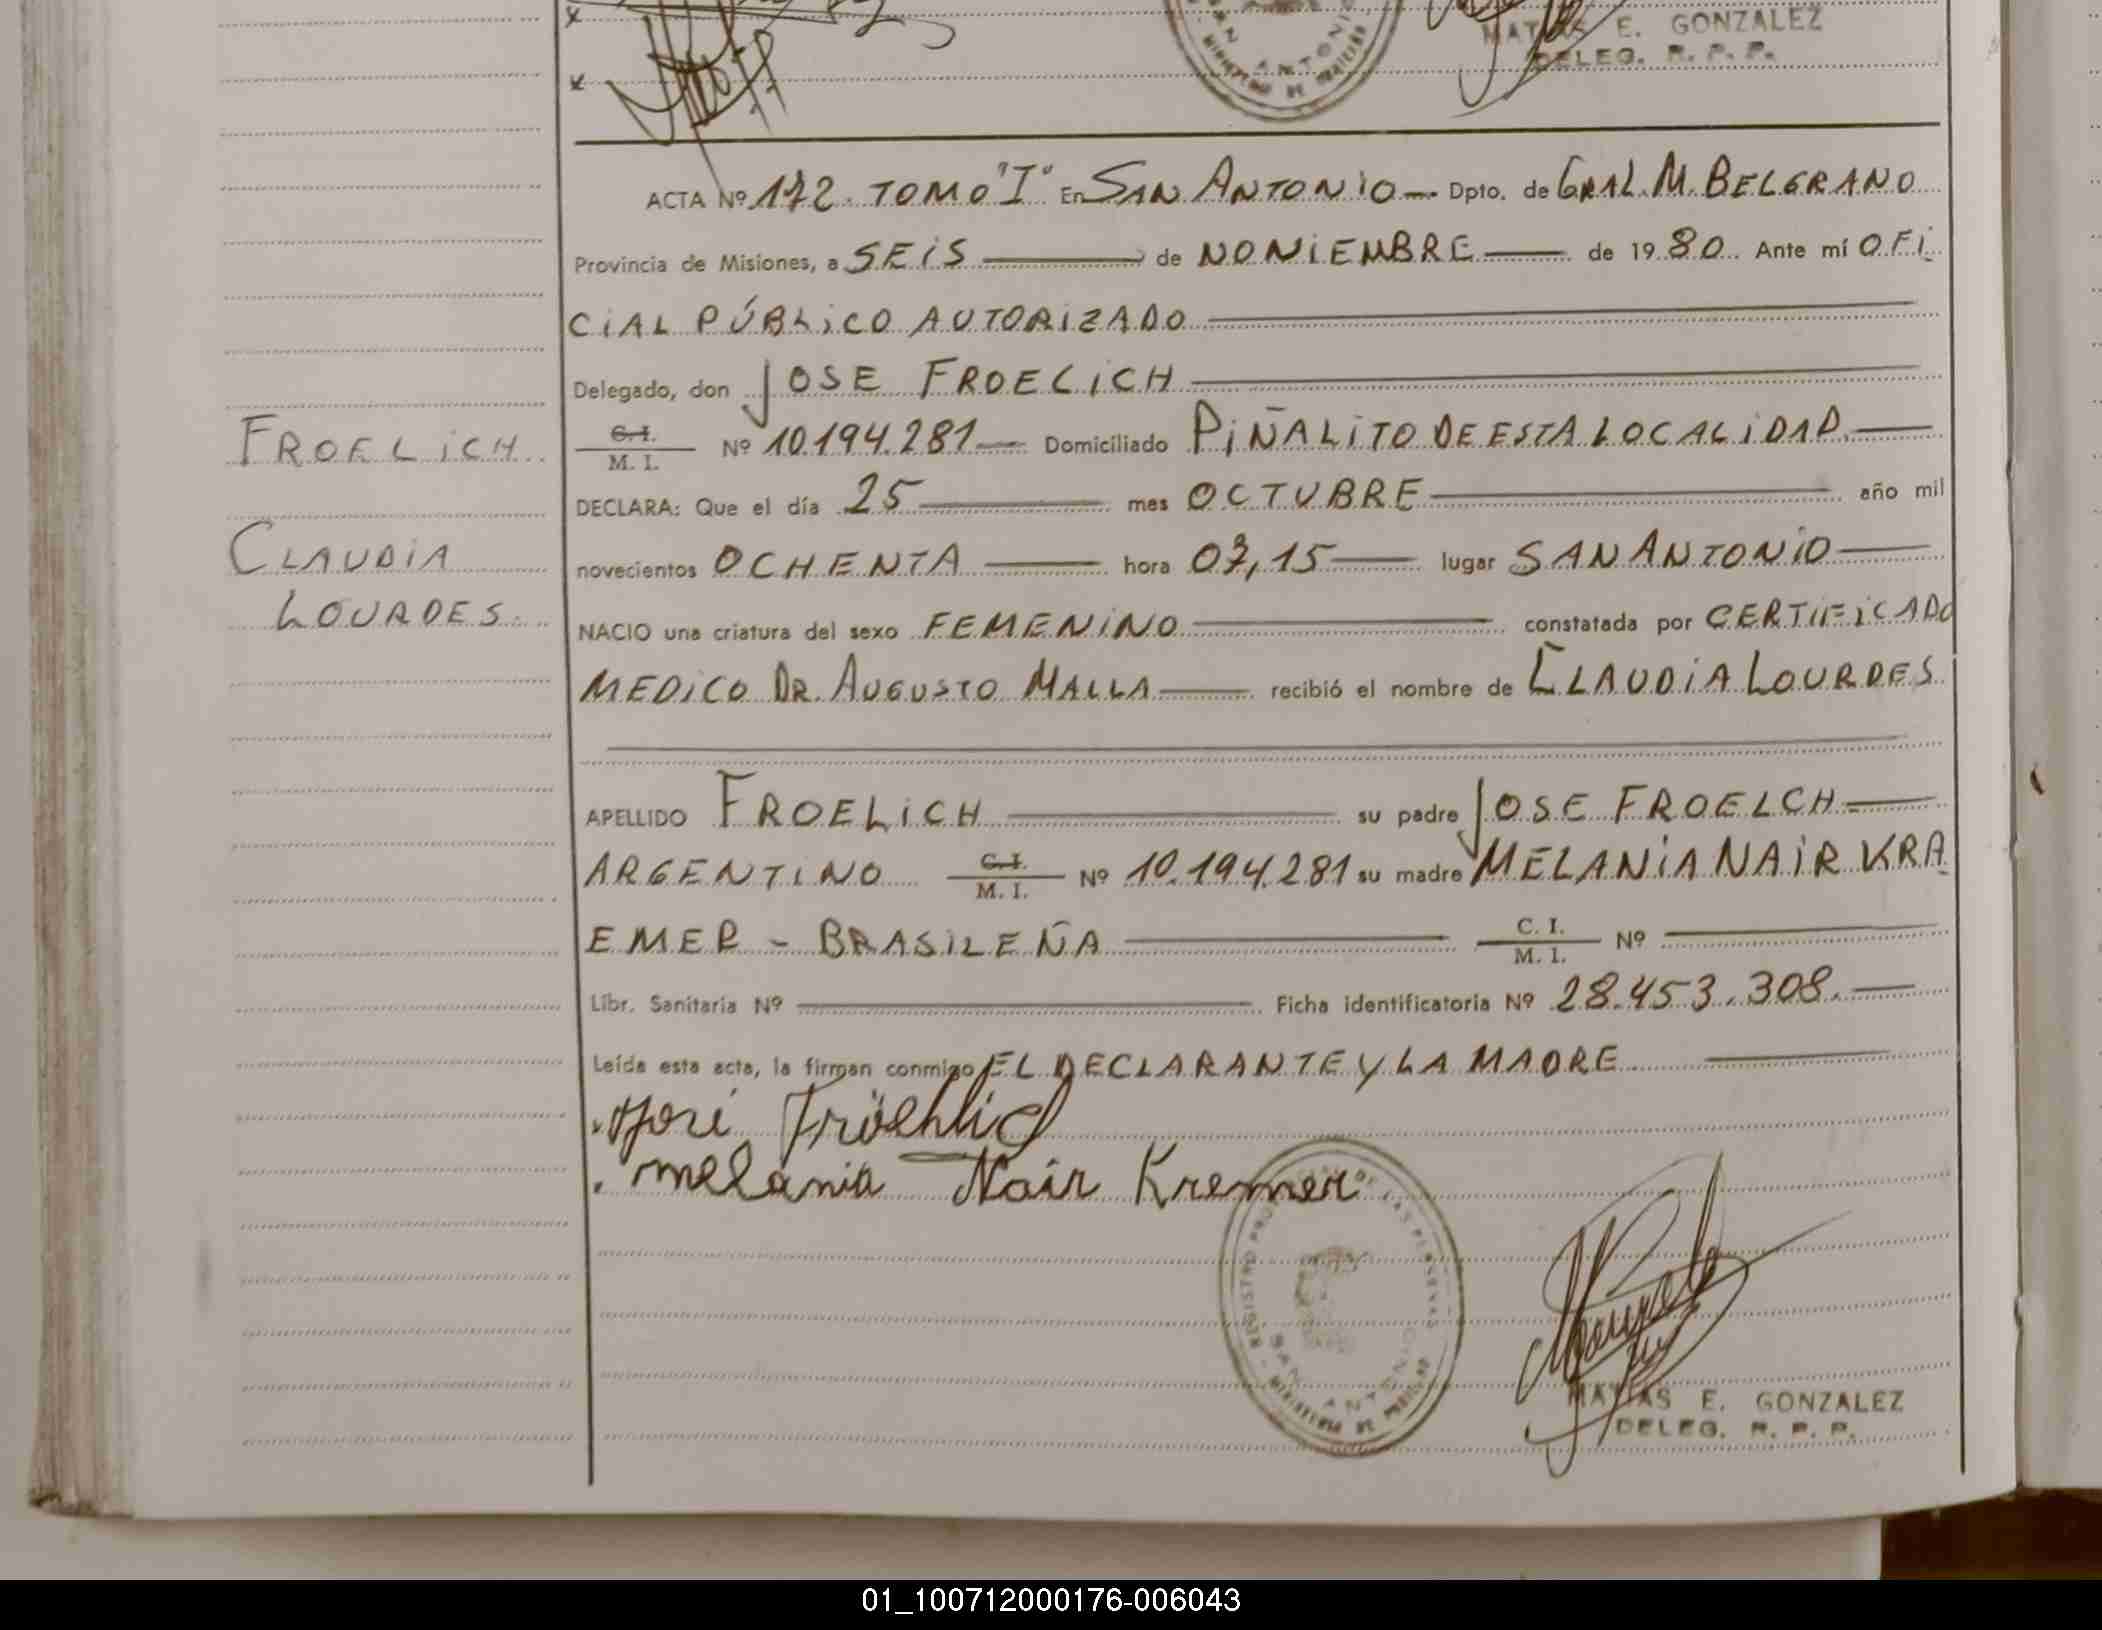 MATIAS E. GONZALEZ
DELEG. R. P. P.
ACTA Nº 172. TOMO "I" En SAN ANTONIO Dpto. de GRAL. M. BELGRANO
Provincia de Misiones, a SEIS de NONIEMBRE de 1980. Ante mí OFI
CIAL PÚBLICO AUTORIZADO
Delegado, don JOSE FROELICH
C.I. / M. I. Nº 10.194.281 Domiciliado PIÑALITO DE ESTA LOCALIDAD.
DECLARA: Que el día 25 mes OCTUBRE año mil
novecientos OCHENTA hora 07,15 lugar SAN ANTONIO
NACIO una criatura del sexo FEMENINO constatada por CERTIFICADO
MEDICO DR. AUGUSTO MALLA recibió el nombre de CLAUDIA LOURDES
APELLIDO FROELICH su padre JOSE FROELCH
ARGENTINO C.I. / M. I. Nº 10.194.281 su madre MELANIA NAIR KRA
EMER - BRASILEÑA C. I. / M. I. Nº
Libr. Sanitaria Nº Ficha identificatoria Nº 28.453.308.
Leída esta acta, la firman conmigo EL DECLARANTE Y LA MADRE
José Fröehlich
melania Nair Kremer
FROELICH
CLAUDIA
LOURDES
REGISTRO PROVINCIAL DE LAS PERSONAS
SAN ANTONIO
MATIAS E. GONZALEZ
DELEG. R. P. P.
01_100712000176-006043